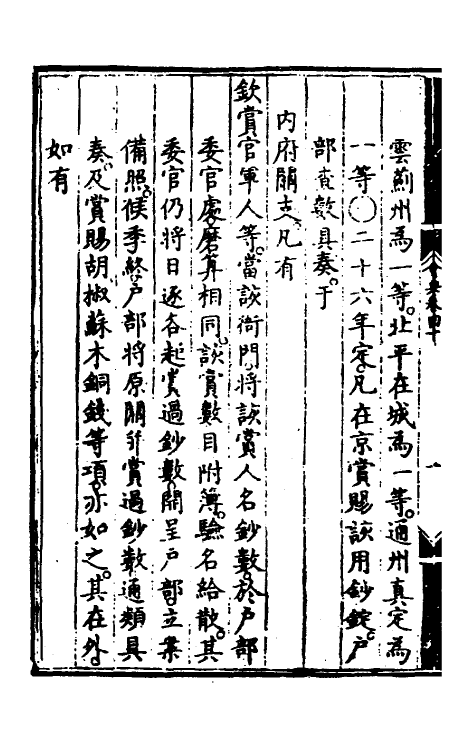 雲薊州爲一等。北平在城爲一等。通州真定爲
一等〇二十六年定。凡在京賞賜該用鈔錠。户
部查數具奏。于
内府關支。凡有
欽賞官軍人等。當該衙門將該賞人名鈔數。於户部
委官處磨算相同。該賞數目附簿。驗名給散。其
委官仍將日逐各起賞過鈔數。開呈户部立案
備照。候季終。户部將原關并賞過鈔數。通類具
奏。及賞賜胡椒蘇木銅錢等項。亦如之。其在外。
如有
會典卷四十
一